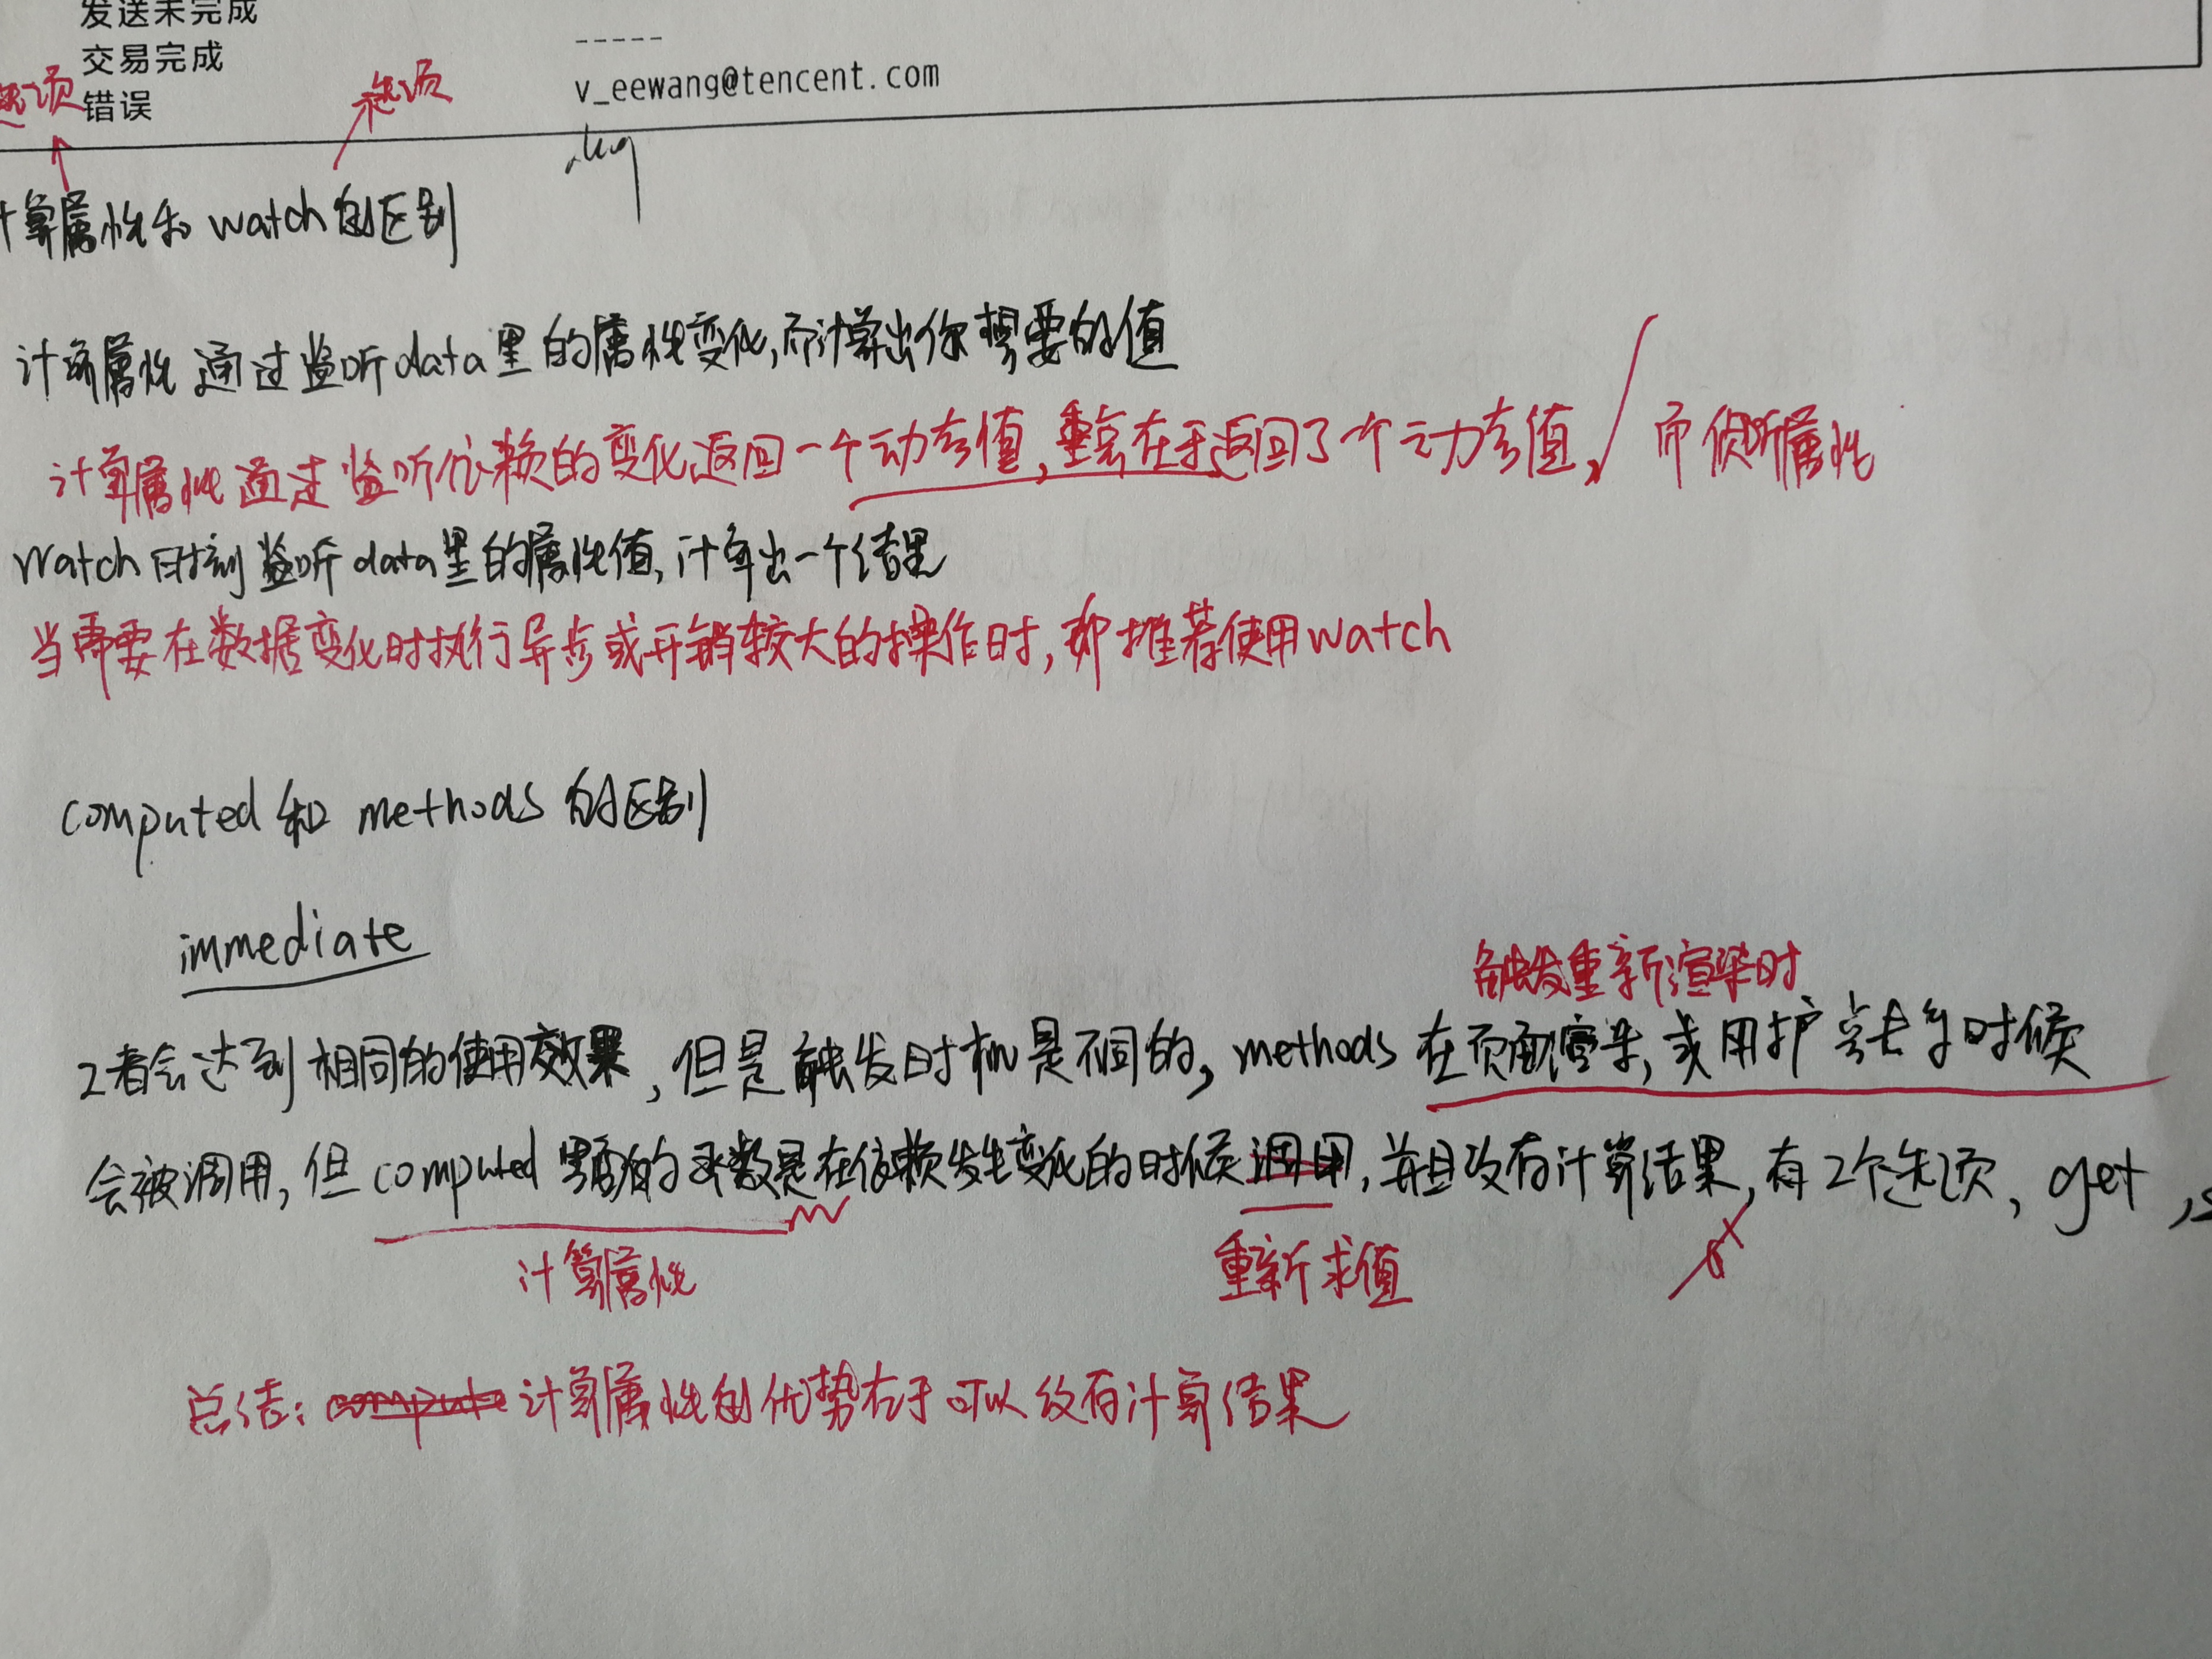 发送未完成
交易完成
错误
-----
v_eewang@tencent.com
选项
选项
计算属性和 watch的区别
计算属性 通过监听data里的属性变化,而计算出你想要的值
计算属性通过监听依赖的变化返回一个动态值,重点在于返回了个动态值, 而侦听属性
watch时刻监听data里的属性值,计算出一个结果
当需要在数据变化时执行异步或开销较大的操作时,都推荐使用watch
computed和 methods 的区别
immediate
触发重新渲染时
2者会达到相同的使用效果,但是触发时机是不同的, methods 在页面渲染,或用户点击的时候
会被调用,但computed 里面的函数是在依赖发生变化的时候调用,并且没有计算结果,有2个选项、get,
计算属性
重新求值
总结: compute 计算属性的优势在于可以缓存计算结果